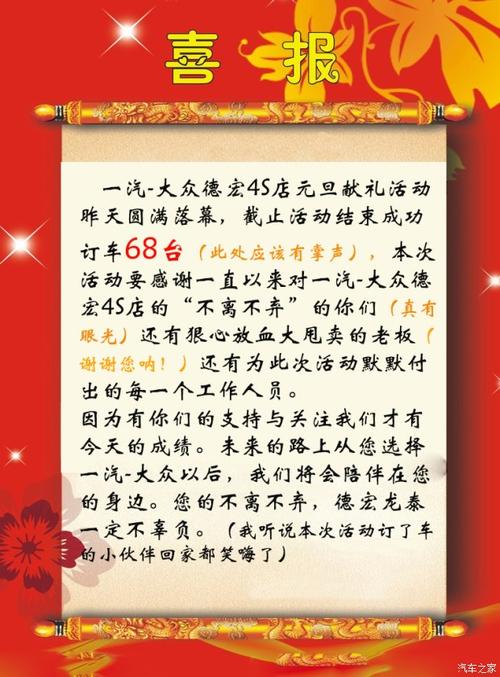 喜 报
一汽-大众德宏4S店元旦献礼活动
昨天圆满落幕，截止活动结束成功
订车68台（此处应该有掌声），本次
活动要感谢一直以来对一汽-大众德
宏4S店的“不离不弃”的你们（真有
眼光）还有狠心放血大甩卖的老板（
谢谢您呐！）还有为此次活动默默付
出的每一个工作人员。
因为有你们的支持与关注我们才有
今天的成绩。未来的路上从您选择
一汽-大众以后，我们将会陪伴在您
的身边。您的不离不弃，德宏龙泰
一定不辜负。（我听说本次活动订了车
的小伙伴回家都笑嗨了）
汽车之家